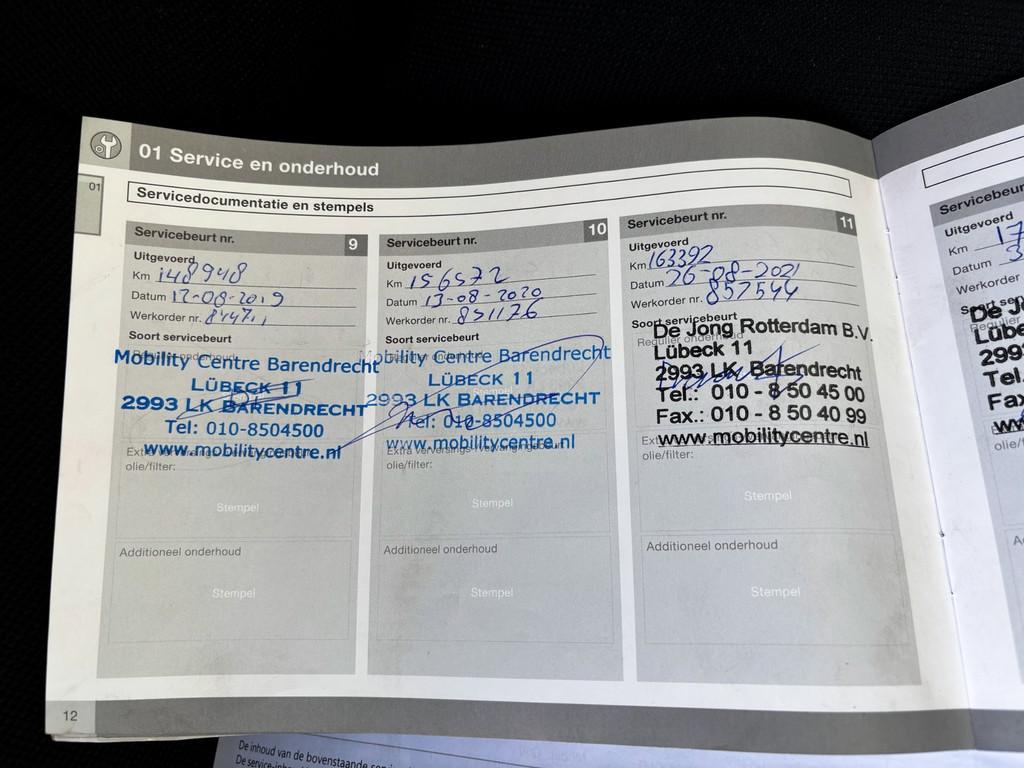 01 Service en onderhoud
01
Servicedocumentatie en stempels
Servicebeurt nr. 9
Uitgevoerd
Km 148948
Datum 12-08-2019
Werkorder nr.
Soort servicebeurt
Regulier onderhoud
Mobility Centre Barendrecht
LÜBECK 11
2993 LK BARENDRECHT
Tel: 010-8504500
www.mobilitycentre.nl
olie/filter:
Stempel
Additioneel onderhoud
Stempel
Servicebeurt nr. 10
Uitgevoerd
Km 156572
Datum 13-08-2020
Werkorder nr. 851176
Soort servicebeurt
Mobility Centre Barendrecht
LÜBECK 11
Stempel
2993 LK BARENDRECHT
Tel: 010-8504500
www.mobilitycentre.nl
olie/filter:
Stempel
Additioneel onderhoud
Stempel
Servicebeurt nr. 11
Uitgevoerd
Km 163392
Datum 26-08-2021
Werkorder nr. 857544
Soort servicebeurt
Regulier onderhoud
De Jong Rotterdam B.V.
Lübeck 11
2993 LK Barendrecht
Tel.: 010 - 8 50 45 00
Fax.: 010 - 8 50 40 99
www.mobilitycentre.nl
olie/filter:
Stempel
Additioneel onderhoud
Stempel
12
Servicebeur
Uitgevoerd
Km 17
Datum 3
Werkorder
De J
Lüb
299
Tel.
Fax
olie/fi
De inhoud van de bovenstaande